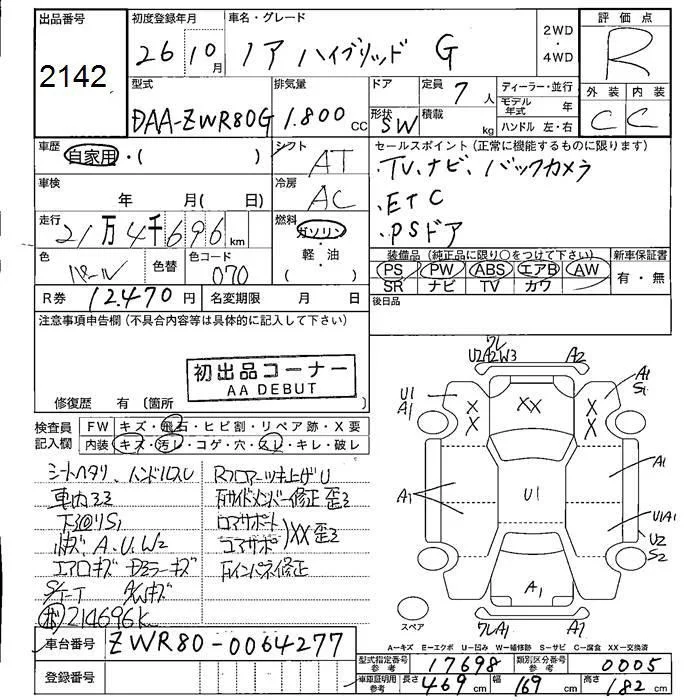 出品番号
2142
初度登録年月
26 10月
車名・グレード
ノア ハイブリッド G
2WD
・
4WD
評価点
R
外装 内装
C C
型式
DAA-ZWR80G
排気量
1.800 CC
ドア
形状 SW
定員 7 人
積載 kg
ディーラー・並行
モデル年式 年
ハンドル 左・右
車歴
自家用・( )
シフト
AT
車検
年 月( 日)
冷房
AC
走行
21万4千696 km
燃料
ガソリン
・
軽・油
( )
色
パール
色替
色コード
070
R券 12.470 円
名変期限 月 日
セールスポイント(正常に機能するものに限ります)
・TV、ナビ、バックカメラ
・ETC
・PSドア
装備品(純正品に限り○をつけて下さい)
PS PW ABS エアB AW
SR ナビ TV カワ
新車保証書
有・無
後日品
注意事項申告欄(不具合内容等は具体的に記入して下さい)
初出品コーナー
AA DEBUT
修復歴 有(箇所
検査員記入欄
FW キズ・飛石・ヒビ割・リペア跡・X要
内装 キズ・汚レ・コゲ・穴・スレ・キレ・破レ
シートヘタリ、ハンドルスレ
車内ヨゴレ
下廻りS1
小キズ A.U.W2
エアロキズ Dミラーキズ
AWキズ
214696k
Rフロアーツキ上ゲU
右サイドメンバー修正 歪ミ
ロアサポート
コアサポ XX歪ミ
右インパネ修正
ワレ
U2A2W3
A2
U1
A1
XX
XX
XX
A1
S1
A1
U1
A1
U1A1
U2
S2
A1
ワレA1
A2
スペア
A-キズ E-エクボ U-凹み W-補修跡 S-サビ C-腐食 XX-交換済
車台番号
ZWR80-0064277
登録番号
型式指定番号 参考 17698
類別区分番号 参考 0005
車庫証明用 参考
長さ 469 cm
幅 169 cm
高さ 182 cm